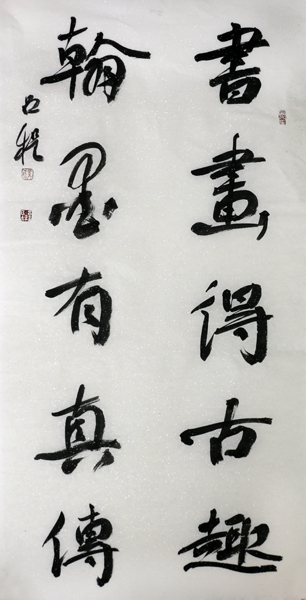 書畫得古趣
翰墨有真傳